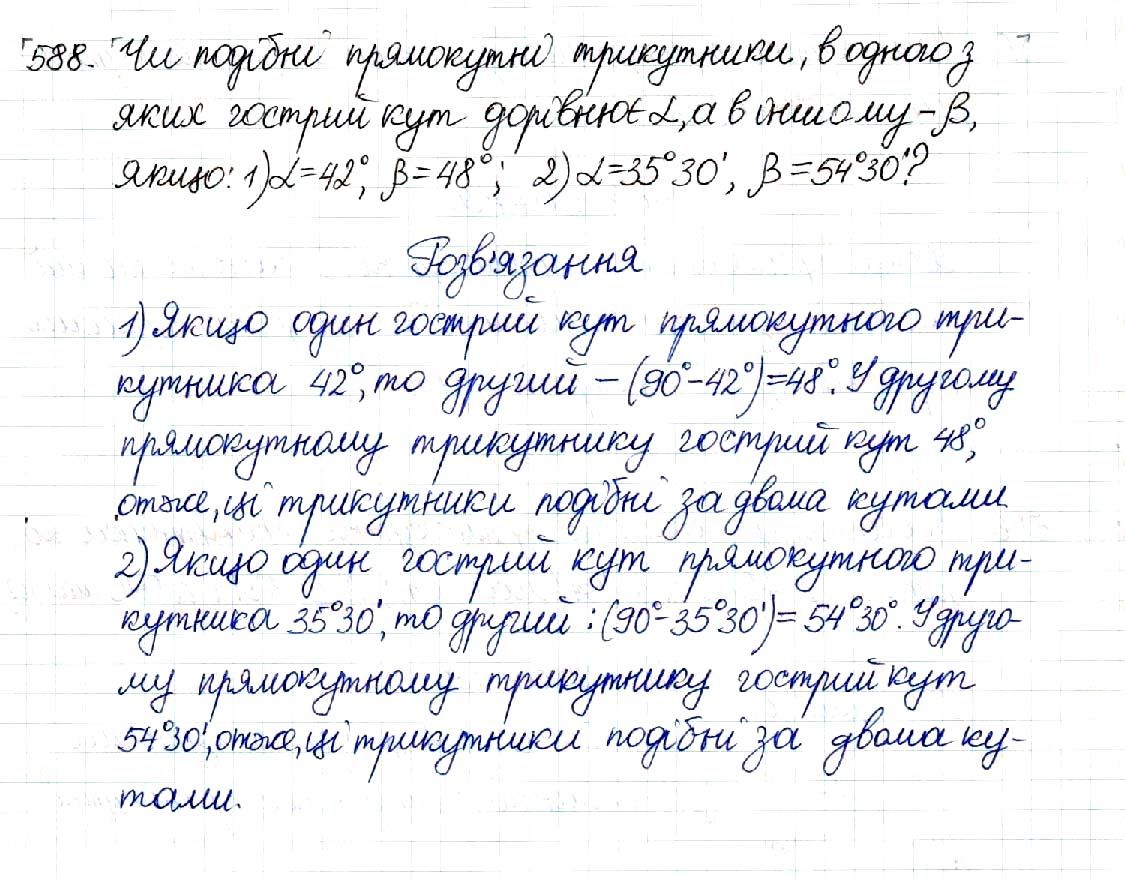 588. Чи подібні прямокутні трикутники, в одного з
яких гострий кут дорівнює α, а в іншому - β,
якщо: 1) α=42°, β=48°; 2) α=35°30', β=54°30'?
Розв'язання
1) Якщо один гострий кут прямокутного три-
кутника 42°, то другий - (90°-42°)=48°. У другому
прямокутному трикутнику гострий кут 48°,
отже, ці трикутники подібні за двома кутами
2) Якщо один гострий кут прямокутного три-
кутника 35°30', то другий : (90°-35°30')= 54°30°. У друго-
му прямокутному трикутнику гострий кут
54°30', отже, ці трикутники подібні за двома ку-
тами.